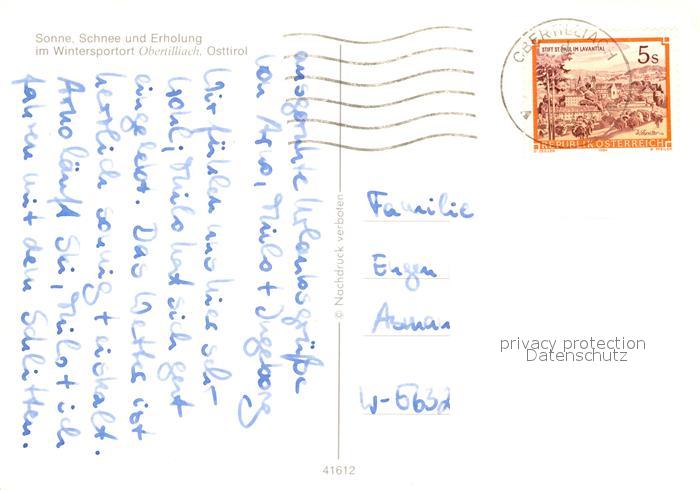 Sonne, Schnee und Erholung
im Wintersportort Obertilliach, Osttirol
ausgeruhte Urlaubsgrüße
von Arno, Milo + Ingeborg
Wir fühlen uns hier sehr
wohl, Milo hat sich gut
eingelebt. Das Wetter ist
herrlich sonnig + eiskalt.
Arno läuft Ski, Milo + ich
fahren mit dem Schlitten.
© Nachdruck verboten
41612
OBERTILLIACH
STIFT ST. PAUL IM LAVANTTAL
5s
REPUBLIK ÖSTERREICH
Familie
Eugen
W-563
privacy protection
Datenschutz